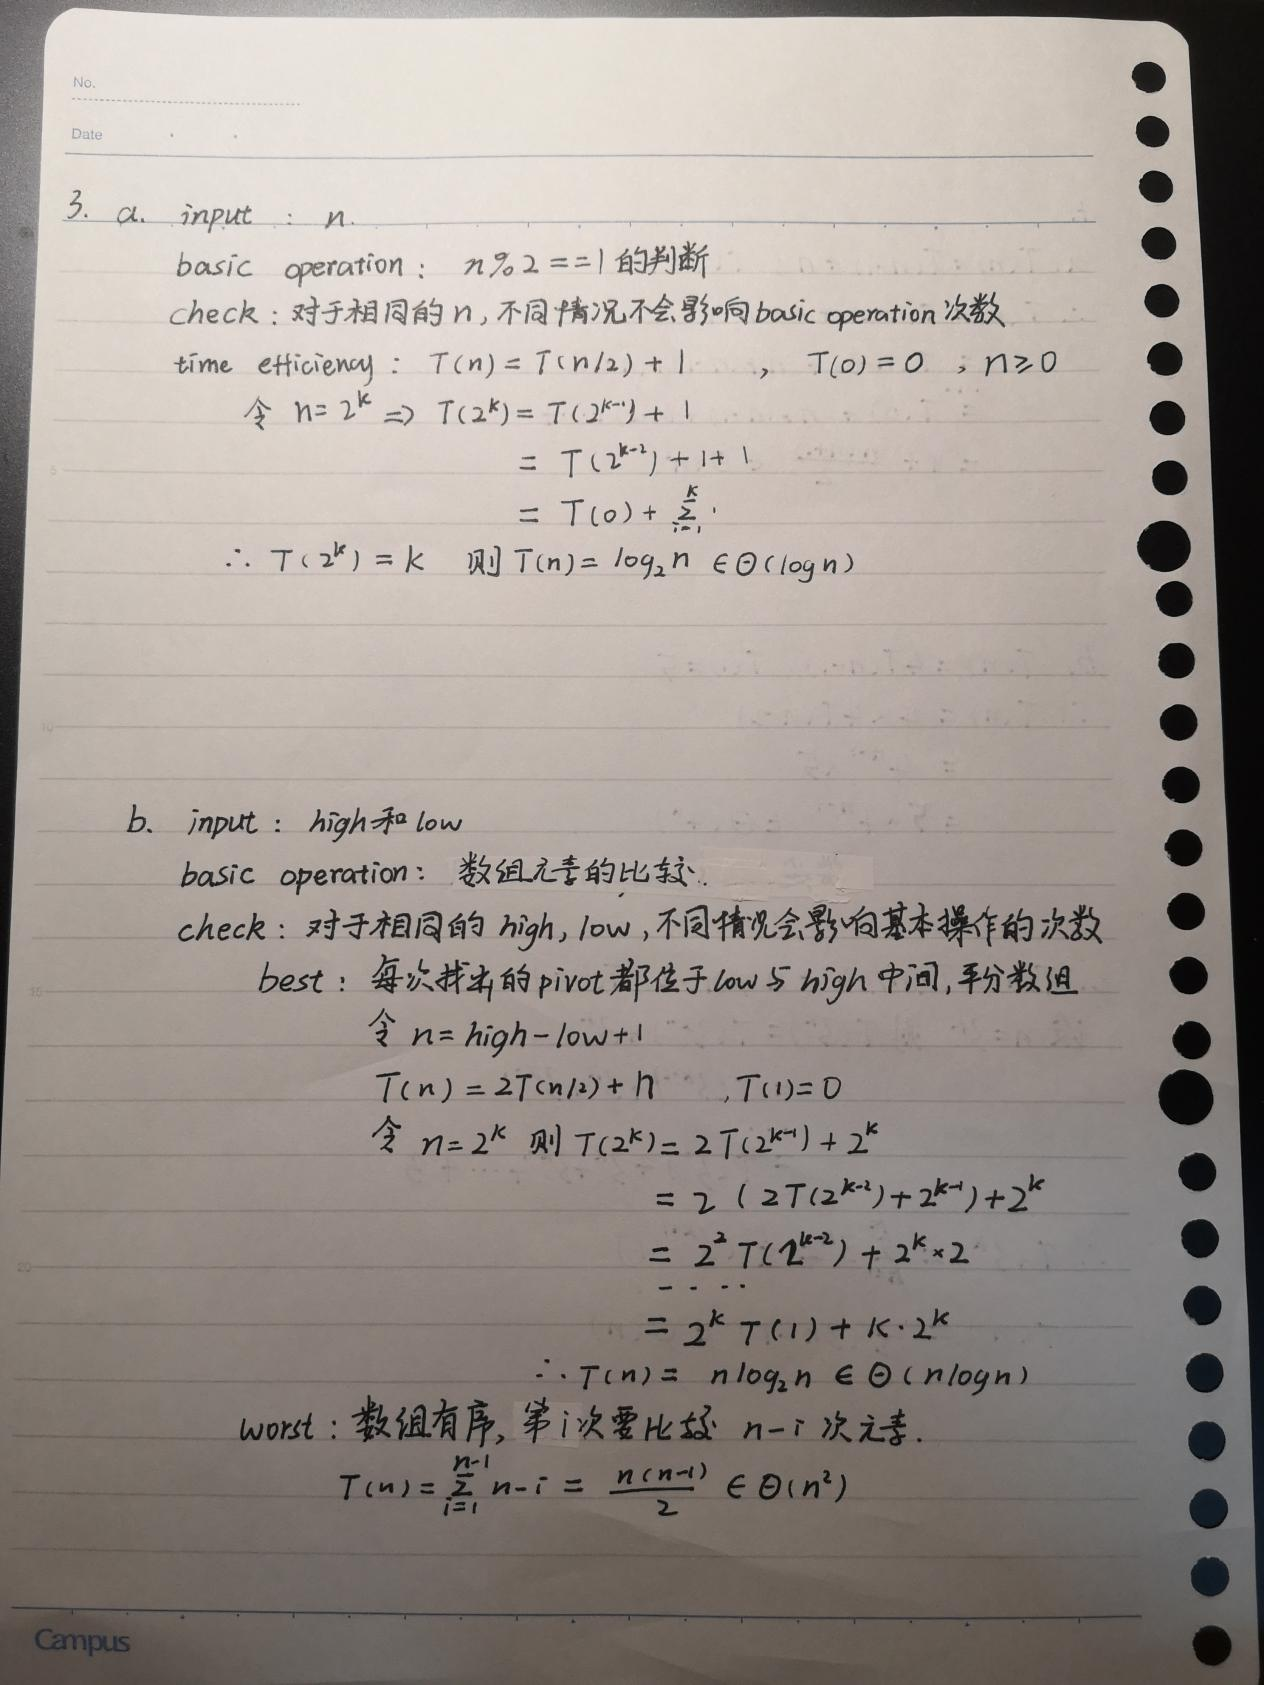 No.
Date
3. a. input : n.
basic operation : n%2==1 的判断
check : 对于相同的n, 不同情况不会影响basic operation次数
time efficiency : T(n) = T(n/2) + 1 , T(0) = 0 , n≥0
令 n=2^k => T(2^k) = T(2^{k-1}) + 1
= T(2^{k-2}) + 1 + 1
= T(0) + \sum_{i=1}^{k} 1
∴ T(2^k) = k 则 T(n) = log₂n ∈ Θ(logn)
5
10
b. input : high和low
basic operation : 数组元素的比较.
check : 对于相同的 high, low, 不同情况会影响基本操作的次数
15
best : 每次找出的pivot都位于low与high中间, 平分数组
令 n = high-low+1
T(n) = 2T(n/2) + n , T(1) = 0
令 n=2^k 则 T(2^k) = 2T(2^{k-1}) + 2^k
= 2 (2T(2^{k-2}) + 2^{k-1}) + 2^k
20
= 2² T(2^{k-2}) + 2^k × 2
....
= 2^k T(1) + k · 2^k
∴ T(n) = nlog₂n ∈ Θ(nlogn)
worst : 数组有序, 第i次要比较 n-i 次元素.
T(n) = \sum_{i=1}^{n-1} n-i = \frac{n(n-1)}{2} ∈ Θ(n²)
Campus